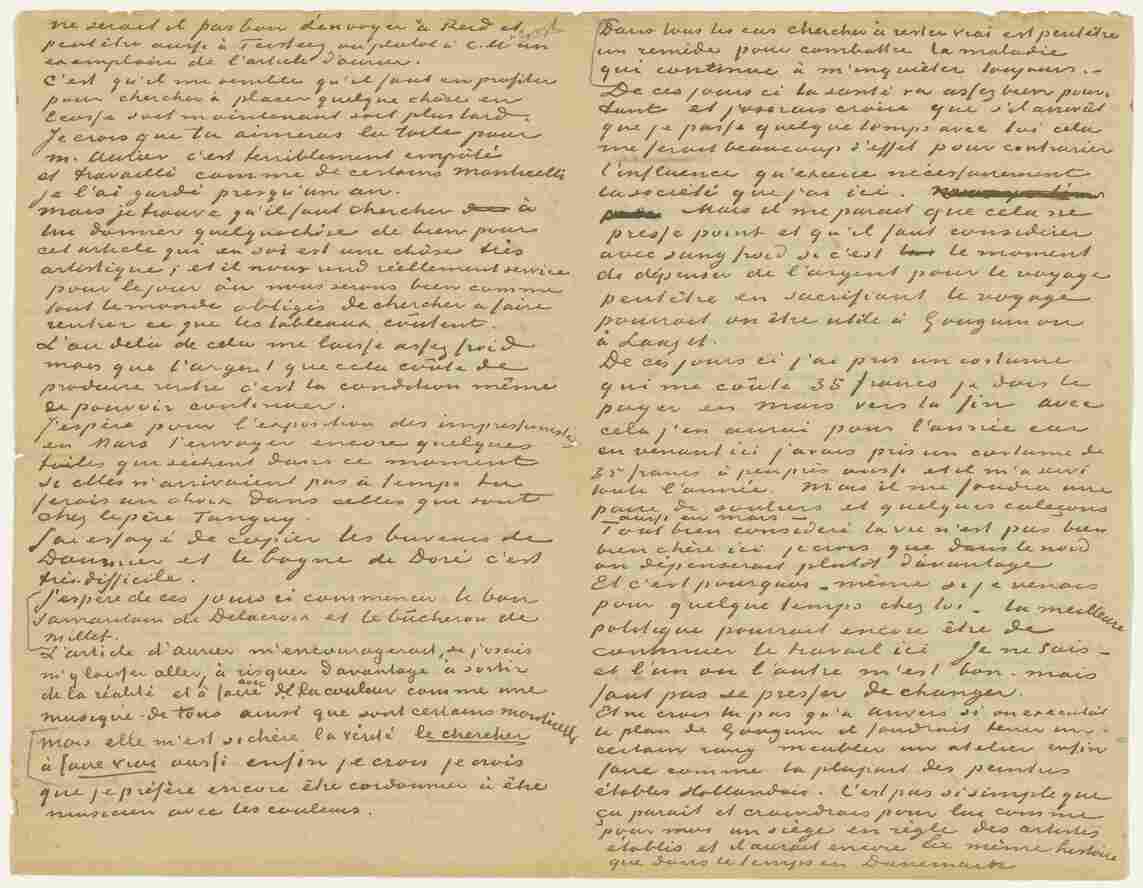 ne serait il pas bon d'envoyer à Reid et
peutêtre aussi à Tersteeg ou plutôt à C.M. un
exemplaire de l'article d'aurier.
C'est qu'il me semble qu'il faut en profiter
pour chercher à placer quelque chôse en
Ecosse soit maintenant soit plus tard.
Je crois que tu aimeras la toile pour
M. Aurier c'est terriblement empâté
et travaillé comme de certains Monticelli
je l'ai gardé presqu'un an.
Mais je trouve qu'il faut chercher à
lui donner quelquechôse de bien pour
cet article qui en soi est une chôse très
artistique; et il nous rend réellement service
pour le jour où nous serons bien comme
tout le monde obligés de chercher a faire
rentrer ce que les tableaux coûtent.
L'au delà de cela me laisse assez froid
mais que l'argent que cela coûte de
produire rentre c'est la condition même
de pouvoir continuer.
J'espère pour l'exposition des impressionistes
en Mars t'envoyer encore quelques
toiles qui sèchent dans ce moment
si elles n'arrivaient pas à temps tu
ferais un choix dans celles que sont
chez le père Tanguy.
J'ai essayé de copier les buveurs de
Daumier et le bagne de Doré c'est
très difficile.
J'espère de ces jours ci commencer le bon
samaritain de Delacroix et le bûcheron de
Millet.
L'article d'aurier m'encouragerait, si j'osais
m'y laisser aller, à risquer davantage à sortir
de la réalité et à faire avec de la couleur comme une
musique de tons ainsi que sont certains Monticelli
Mais elle m'est si chère la vérité le chercher
à faire vrai aussi enfin je crois je crois
que je préfère encore être cordonnier à être
musicien avec les couleurs.
Dans tous les cas chercher à rester vrai est peutêtre
un remède pour combattre la maladie
qui continue à m'inquieter toujours.-
De ces jours ci la santé va assez bien pour-
tant et j'oserais croire que s'il arrivât
que je passe quelque temps avec toi cela
me ferait beaucoup d'effet pour contrarier
l'influence qu'exerce nécessairement
la société que j'ai ici.
Mais il me parait que cela ne
presse point et qu'il faut considérer
avec sang froid si c'est le moment
de dépenser de l'argent pour le voyage
peutêtre en sacrifiant le voyage
pourrait on être utile à Gauguin ou
à Lauzet.
De ces jours ci j'ai pris un costume
qui me coûte 35 francs je dois le
payer en mars vers la fin avec
cela j'en aurai pour l'année car
en venant ici j'avais pris un costume de
35 francs à peu près aussi et il m'a servi
toute l'année. Mais il me faudra une
paire de souliers et quelques caleçons
aussi en mars -
Tout bien considéré la vie n'est pas bien
bien chère ici je crois que dans le nord
on dépenserait plutôt davantage
Et c'est pourquoi - même si je venais
pour quelque temps chez toi - la meilleure
politique pourrait encore être de
continuer le travail ici Je ne sais -
et l'un ou l'autre m'est bon - mais
faut pas se presser de changer.
Et ne crois tu pas qu'à Anvers si on executât
le plan de Gauguin il faudrait tenir un
certain rang meubler un atelier enfin
faire comme la plupart des peintres
établis Hollandais. C'est pas si simple que
ça parait et craindrais pour lui comme
pour moi un siège en règle des artistes
établis et il aurait encore la même histoire
que dans le temps en Danemark